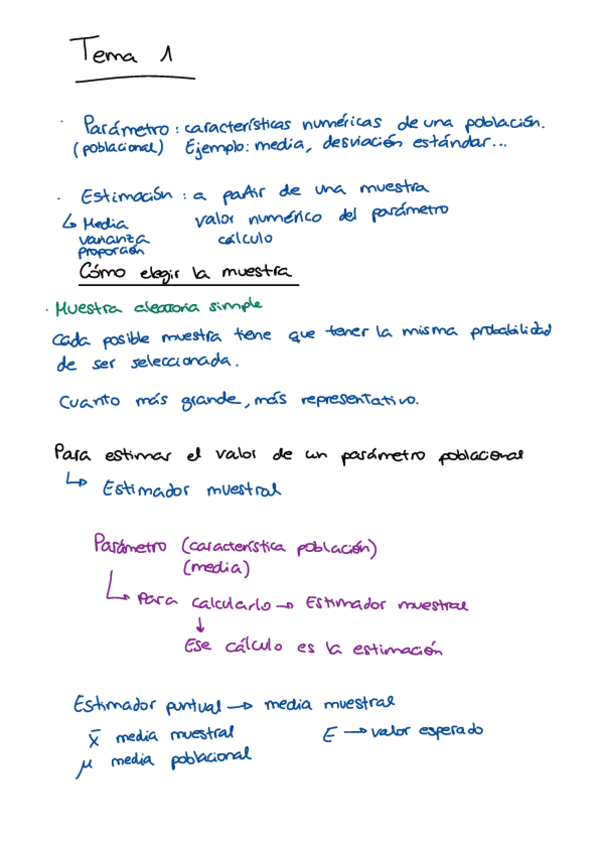 Tema 1
· Parámetro : características numéricas de una población.
(poblacional) Ejemplo: media, desviación estándar...
· Estimación : a partir de una muestra
↳ Media valor numérico del parámetro
varianza cálculo
proporción
Cómo elegir la muestra
· Muestra aleatoria simple
Cada posible muestra tiene que tener la misma probabilidad
de ser seleccionada.
Cuanto más grande, más representativo.
Para estimar el valor de un parámetro poblacional
↳ Estimador muestral
Parámetro (característica población)
(media)
↳ Para calcularlo → Estimador muestral
↓
Ese cálculo es la estimación
Estimador puntual → media muestral
x̄ media muestral E → valor esperado
μ media poblacional